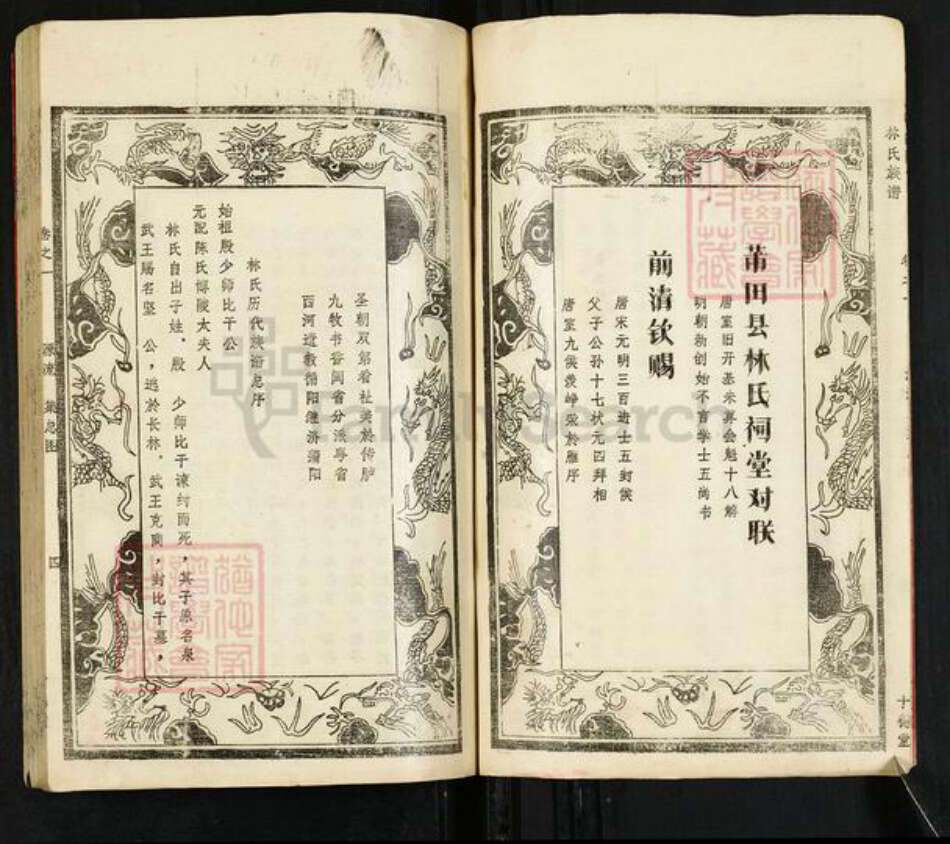 林氏族谱
莆田县林氏祠堂对联
唐室旧开基未算会魁十八解
明朝初创始不言学士五尚书
前清钦赐
唐宋元明三百进士五封侯
父子公孙十七状元四拜相
唐室九侯羡峥荣於雁序
圣朝双第看祉美於传胪
九牧书香闽省分派粤省
西河道教衡阳继济须阳
林氏历代族谱总序
始祖殷少师比干公
元配陈氏博陵大夫人
林氏自出子姓，殷 少师比干谏纣而死，其子原名泉
武王赐名坚 公，逃於长林，武王克商，封比干墓，
卷之一
源流
四
FamilySearch